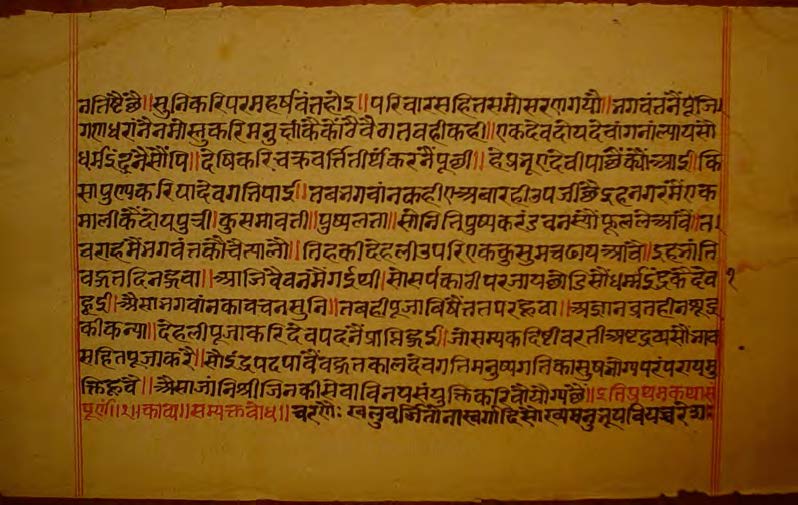 नतिष्टैंछै॥ सुनिकरिपरमहर्षवंतहोइ॥ परिवारसहितसमोसरणगयौ॥ भगवंतनैंपूजि।
गणधरांनैनमोस्तुकरिमनुष्यांकैकोठैवैवैगतबहीकही॥ एकदेवदोयदेवांगनांल्यायसौ
धर्म्मइंद्रनैसौंपि॥ देषिकरिचक्रवर्त्तितीर्थंकरनैंपूछी॥ हेप्रभूएदेवीपाछैंक्यौंआई॥ कि
सापुण्यकरियादेवगतिपाई॥ तबभगवांनकहीएअबारहीउपजीछैइहनगरमेंएक
मालीकैंदोयपुत्री॥ कुसमावती॥ पुष्पलता॥ सोनितिपुष्पकरंडवनस्यौंफूललेआंवै॥ त
बराहमैंभगवंतकौचैत्यालो॥ तिहकीदेहलीउपरिएककुसुमचढायआंवौ॥ इहभांति
बहुतदिनहुवा॥ आजिवैवनमैंगईथी॥ सोसर्पकाटीपरजायछोडिसौंधर्म्मइंद्रकैदेव १
हुई॥ अैसाभगवांनकावचनसुनि॥ तबहीपूजाविषैंततपरहुवा॥ अज्ञानव्रतहीनशूद्र
कीकन्या॥ देहलीपूजाकरिदेवपदनैंप्राप्तिहुई॥ जोसम्यकदिष्टीवरतीअष्टद्रव्यसौंभाव
सहितपूजाकरै॥ सोइंद्रपदपांवैंबहुतकालदेवगतिमनुष्यगतिकासुषभोग्यपरंपरायमु
क्तिहूवै॥ अैसाजांनिश्रीजिनकीसेवाविनयसंयुक्तिकरिवौयोग्यछैं॥ इतिप्रथमकथासं
पूर्ण॥१॥ काव्य॥ सम्यक्तबोध॥ चरणैः खलुवर्जितोना स्वर्गादिसोख्यमनुभूय